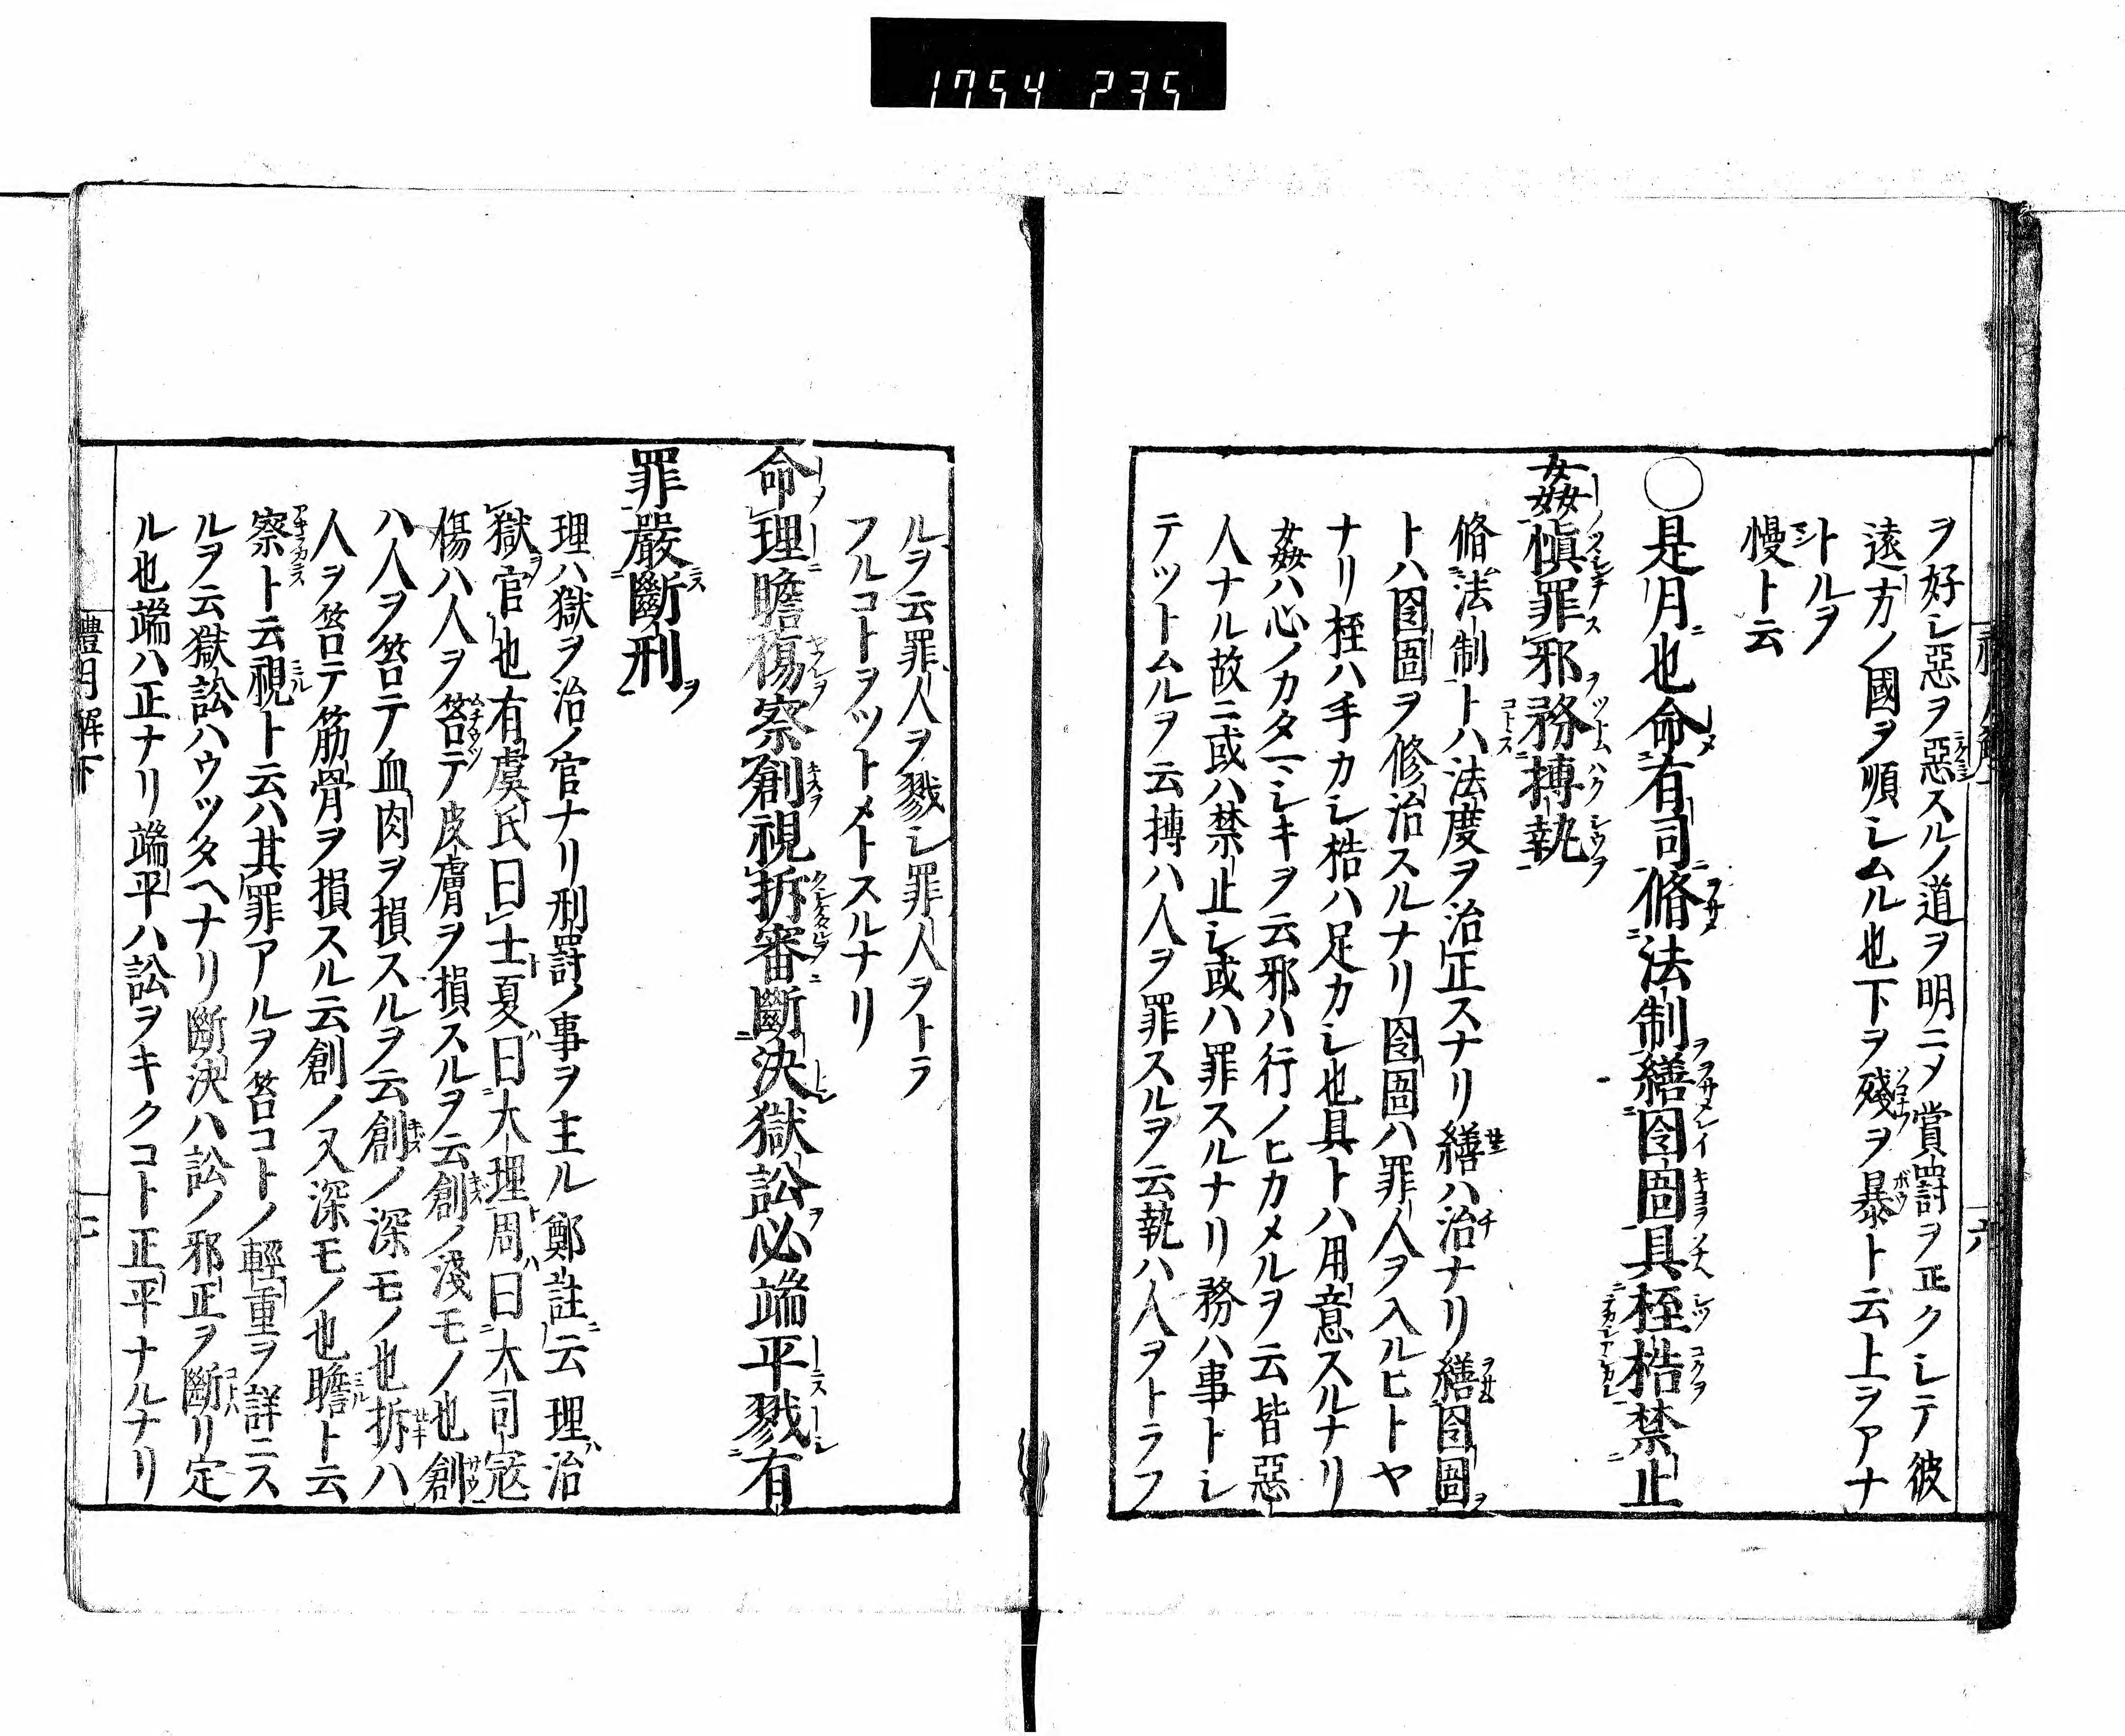 1754 235
ヲ好シ惡ヲ惡スルノ道ヲ明ニメ賞罸ヲ正クシテ彼
遠方ノ國ヲ順シムル也下ヲ殘ヲ暴ト云上ヲアナ
トルヲ
慢ト云
○是月也命有司脩法制繕囹圄具桎梏禁止
姦愼罪邪務搏執
脩法制トハ法度ヲ治正スナリ繕ハ治ナリ繕囹圄
トハ囹圄ヲ修治スルナリ囹圄ハ罪人ヲ入ルヒトヤ
ナリ桎ハ手カシ梏ハ足カシ也具トハ用意スルナリ
姦ハ心ノカタマシキヲ云邪ハ行ノヒカメルヲ云皆惡
人ナル故ニ或ハ禁止シ或ハ罪スルナリ務ハ事トシ
テツトムルヲ云搏ハ人ヲ罪スルヲ云執ハ人ヲトラフ
六
ルヲ云罪人ヲ戮シ罪人ヲトラ
フルコトヲツトメトスルナリ
命理瞻傷察創視折審斷決獄訟必端平戮有
罪嚴斷刑
理ハ獄ヲ治ノ官ナリ刑罸ノ事ヲ主ル鄭註云理治
獄官也有虞氏曰士夏曰大理周曰大司寇
傷ハ人ヲ笞テ皮膚ヲ損スルヲ云創ノ淺モノ也創
ハ人ヲ笞テ血肉ヲ損スルヲ云創ノ深モノ也折ハ
人ヲ笞テ筋骨ヲ損スル云創ノ又深モノ也瞻ト云
察ト云視ト云ハ其罪アルヲ笞コトノ輕重ヲ詳ニス
ルヲ云獄訟ハウツタヘナリ斷決ハ訟ノ邪正ヲ斷リ定
ル也端ハ正ナリ端平ハ訟ヲキクコト正平ナルナリ
禮月解下
七